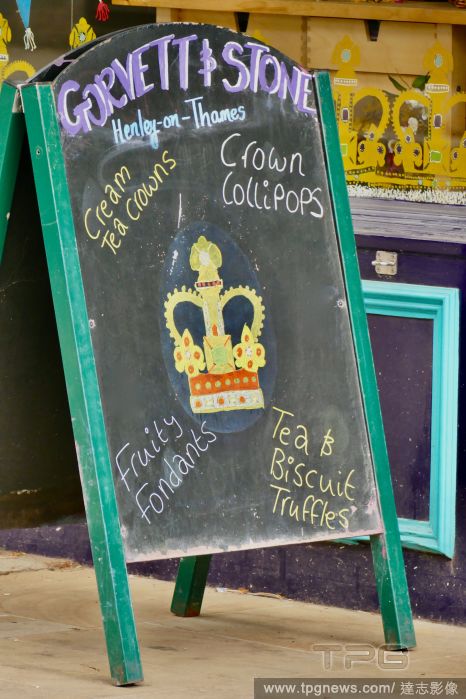 GORVETT & STONE
Henley-on-Thames
Cream
Tea Crowns
Crown
Lollipops
Fruity
Fondants
Tea &
Biscuit
Truffles
TPG
www.tpgnews.com/達志影像